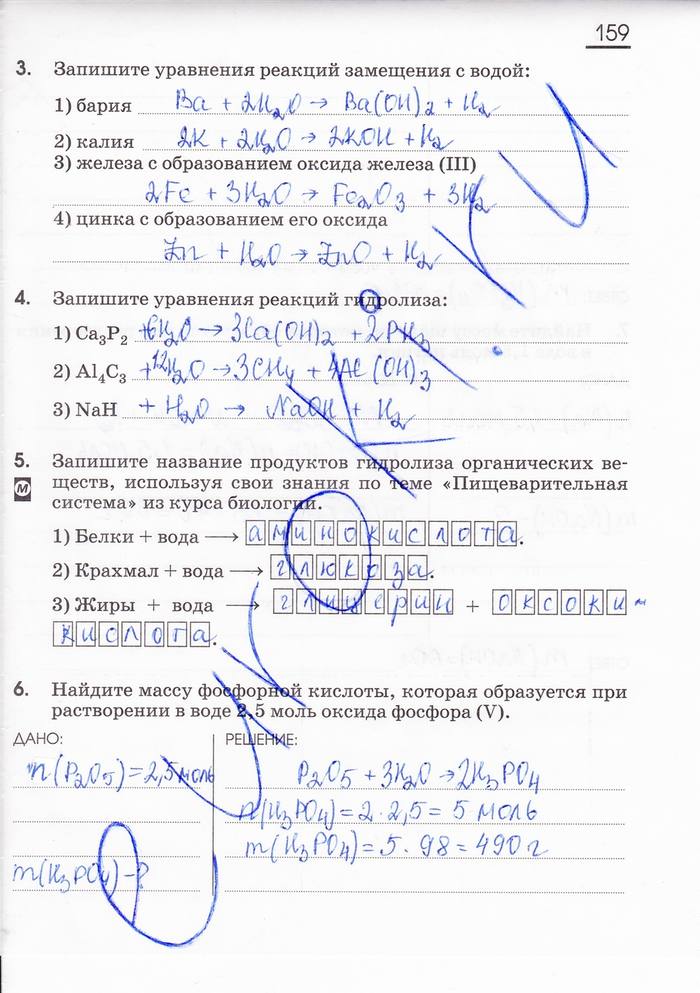 159
3. Запишите уравнения реакций замещения с водой:
1) бария Ba + 2H₂O → Ba(OH)₂ + H₂
2) калия 2K + 2H₂O → 2KOH + H₂
3) железа с образованием оксида железа (III)
2Fe + 3H₂O → Fe₂O₃ + 3H₂
4) цинка с образованием его оксида
Zn + H₂O → ZnO + H₂
4. Запишите уравнения реакций гидролиза:
1) Ca₃P₂ +6H₂O → 3Ca(OH)₂ + 2PH₃
2) Al₄C₃ +12H₂O → 3CH₄ + 4Al(OH)₃
3) NaH + H₂O → NaOH + H₂
5. Запишите название продуктов гидролиза органических ве-
М ществ, используя свои знания по теме «Пищеварительная
система» из курса биологии.
1) Белки + вода → аминокислота.
2) Крахмал + вода → глюкоза.
3) Жиры + вода → глицерин + оксоки -
кислота.
6. Найдите массу фосфорной кислоты, которая образуется при
растворении в воде 2,5 моль оксида фосфора (V).
ДАНО: РЕШЕНИЕ:
n(P₂O₅)=2,5 моль P₂O₅ + 3H₂O → 2H₃PO₄
n(H₃PO₄) = 2 · 2,5 = 5 моль
m(H₃PO₄) = 5 · 98 = 490 г
m(H₃PO₄) - ?